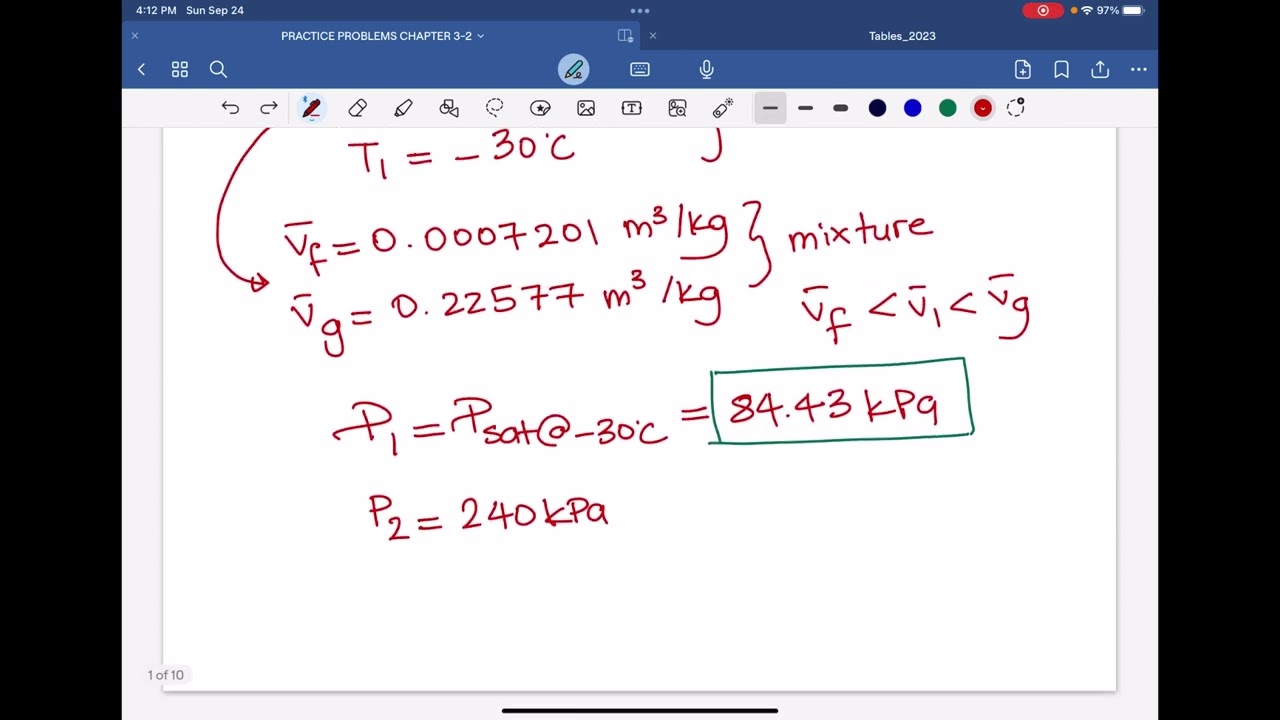 4:12 PM Sun Sep 24
97%
PRACTICE PROBLEMS CHAPTER 3-2
Tables_2023
T₁ = -30°C
v̄f = 0.0007201 m³/kg
mixture
v̄g = 0.22577 m³/kg
v̄f < v̄₁ < v̄g
P₁ = Psat@-30°C = 84.43 kPa
P₂ = 240 kPa
1 of 10